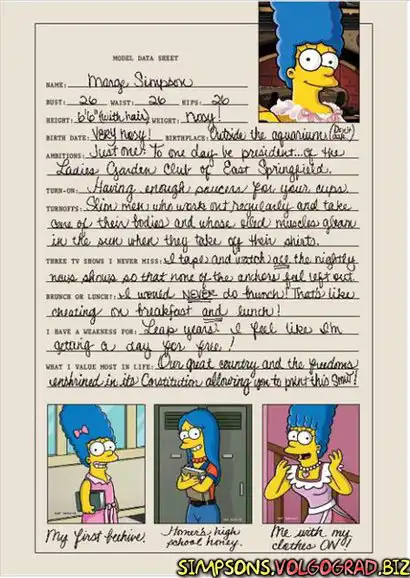 MODEL DATA SHEET
NAME: Marge Simpson
BUST: 26 WAIST: 26 HIPS: 26
HEIGHT: 6'6" (with hair) WEIGHT: Nosy!
BIRTH DATE: Very nosy! BIRTHPLACE: Outside the aquarium. (Don't ask.)
AMBITIONS: Just one: To one day be president...of the
Ladies Garden Club of East Springfield.
TURN-ON: Having enough saucers for your cups.
TURNOFFS: Slim men who work out regularly and take
care of their bodies and whose oiled muscles gleam
in the sun when they take off their shirts.
THREE TV SHOWS I NEVER MISS: I tape and watch all the nightly
news shows so that none of the anchors feel left out.
BRUNCH OR LUNCH?: I would NEVER do brunch! That's like
cheating on breakfast and lunch!
I HAVE A WEAKNESS FOR: Leap years! I feel like I'm
getting a day for free!
WHAT I VALUE MOST IN LIFE: Our great country and the freedoms
enshrined in its Constitution allowing you to print this smut!
My first beehive.
Homer's high
school honey.
Me with my
clothes ON!!
SIMPSONS.VOLGOGRAD.BIZ